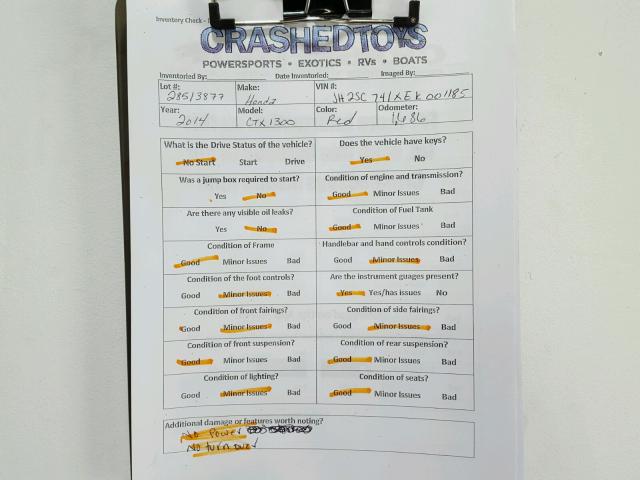 Inventory Check -
CRASHEDTOYS
POWERSPORTS • EXOTICS • RVs • BOATS
Inventoried By: Date Inventoried: Imaged By:
Lot #: 28513877 Make: Honda VIN #: JH2SC741XEK001185
Year: 2014 Model: CTX1300 Color: Red Odometer: 1,686
What is the Drive Status of the vehicle? Does the vehicle have keys?
No Start Start Drive Yes No
Was a jump box required to start? Condition of engine and transmission?
Yes No Good Minor Issues Bad
Are there any visible oil leaks? Condition of Fuel Tank
Yes No Good Minor Issues Bad
Condition of Frame Handlebar and hand controls condition?
Good Minor Issues Bad Good Minor Issues Bad
Condition of the foot controls? Are the instrument guages present?
Good Minor Issues Bad Yes Yes/has issues No
Condition of front fairings? Condition of side fairings?
Good Minor Issues Bad Good Minor Issues Bad
Condition of front suspension? Condition of rear suspension?
Good Minor Issues Bad Good Minor Issues Bad
Condition of lighting? Condition of seats?
Good Minor Issues Bad Good Minor Issues Bad
Additional damage or features worth noting?
No Power
No turn over